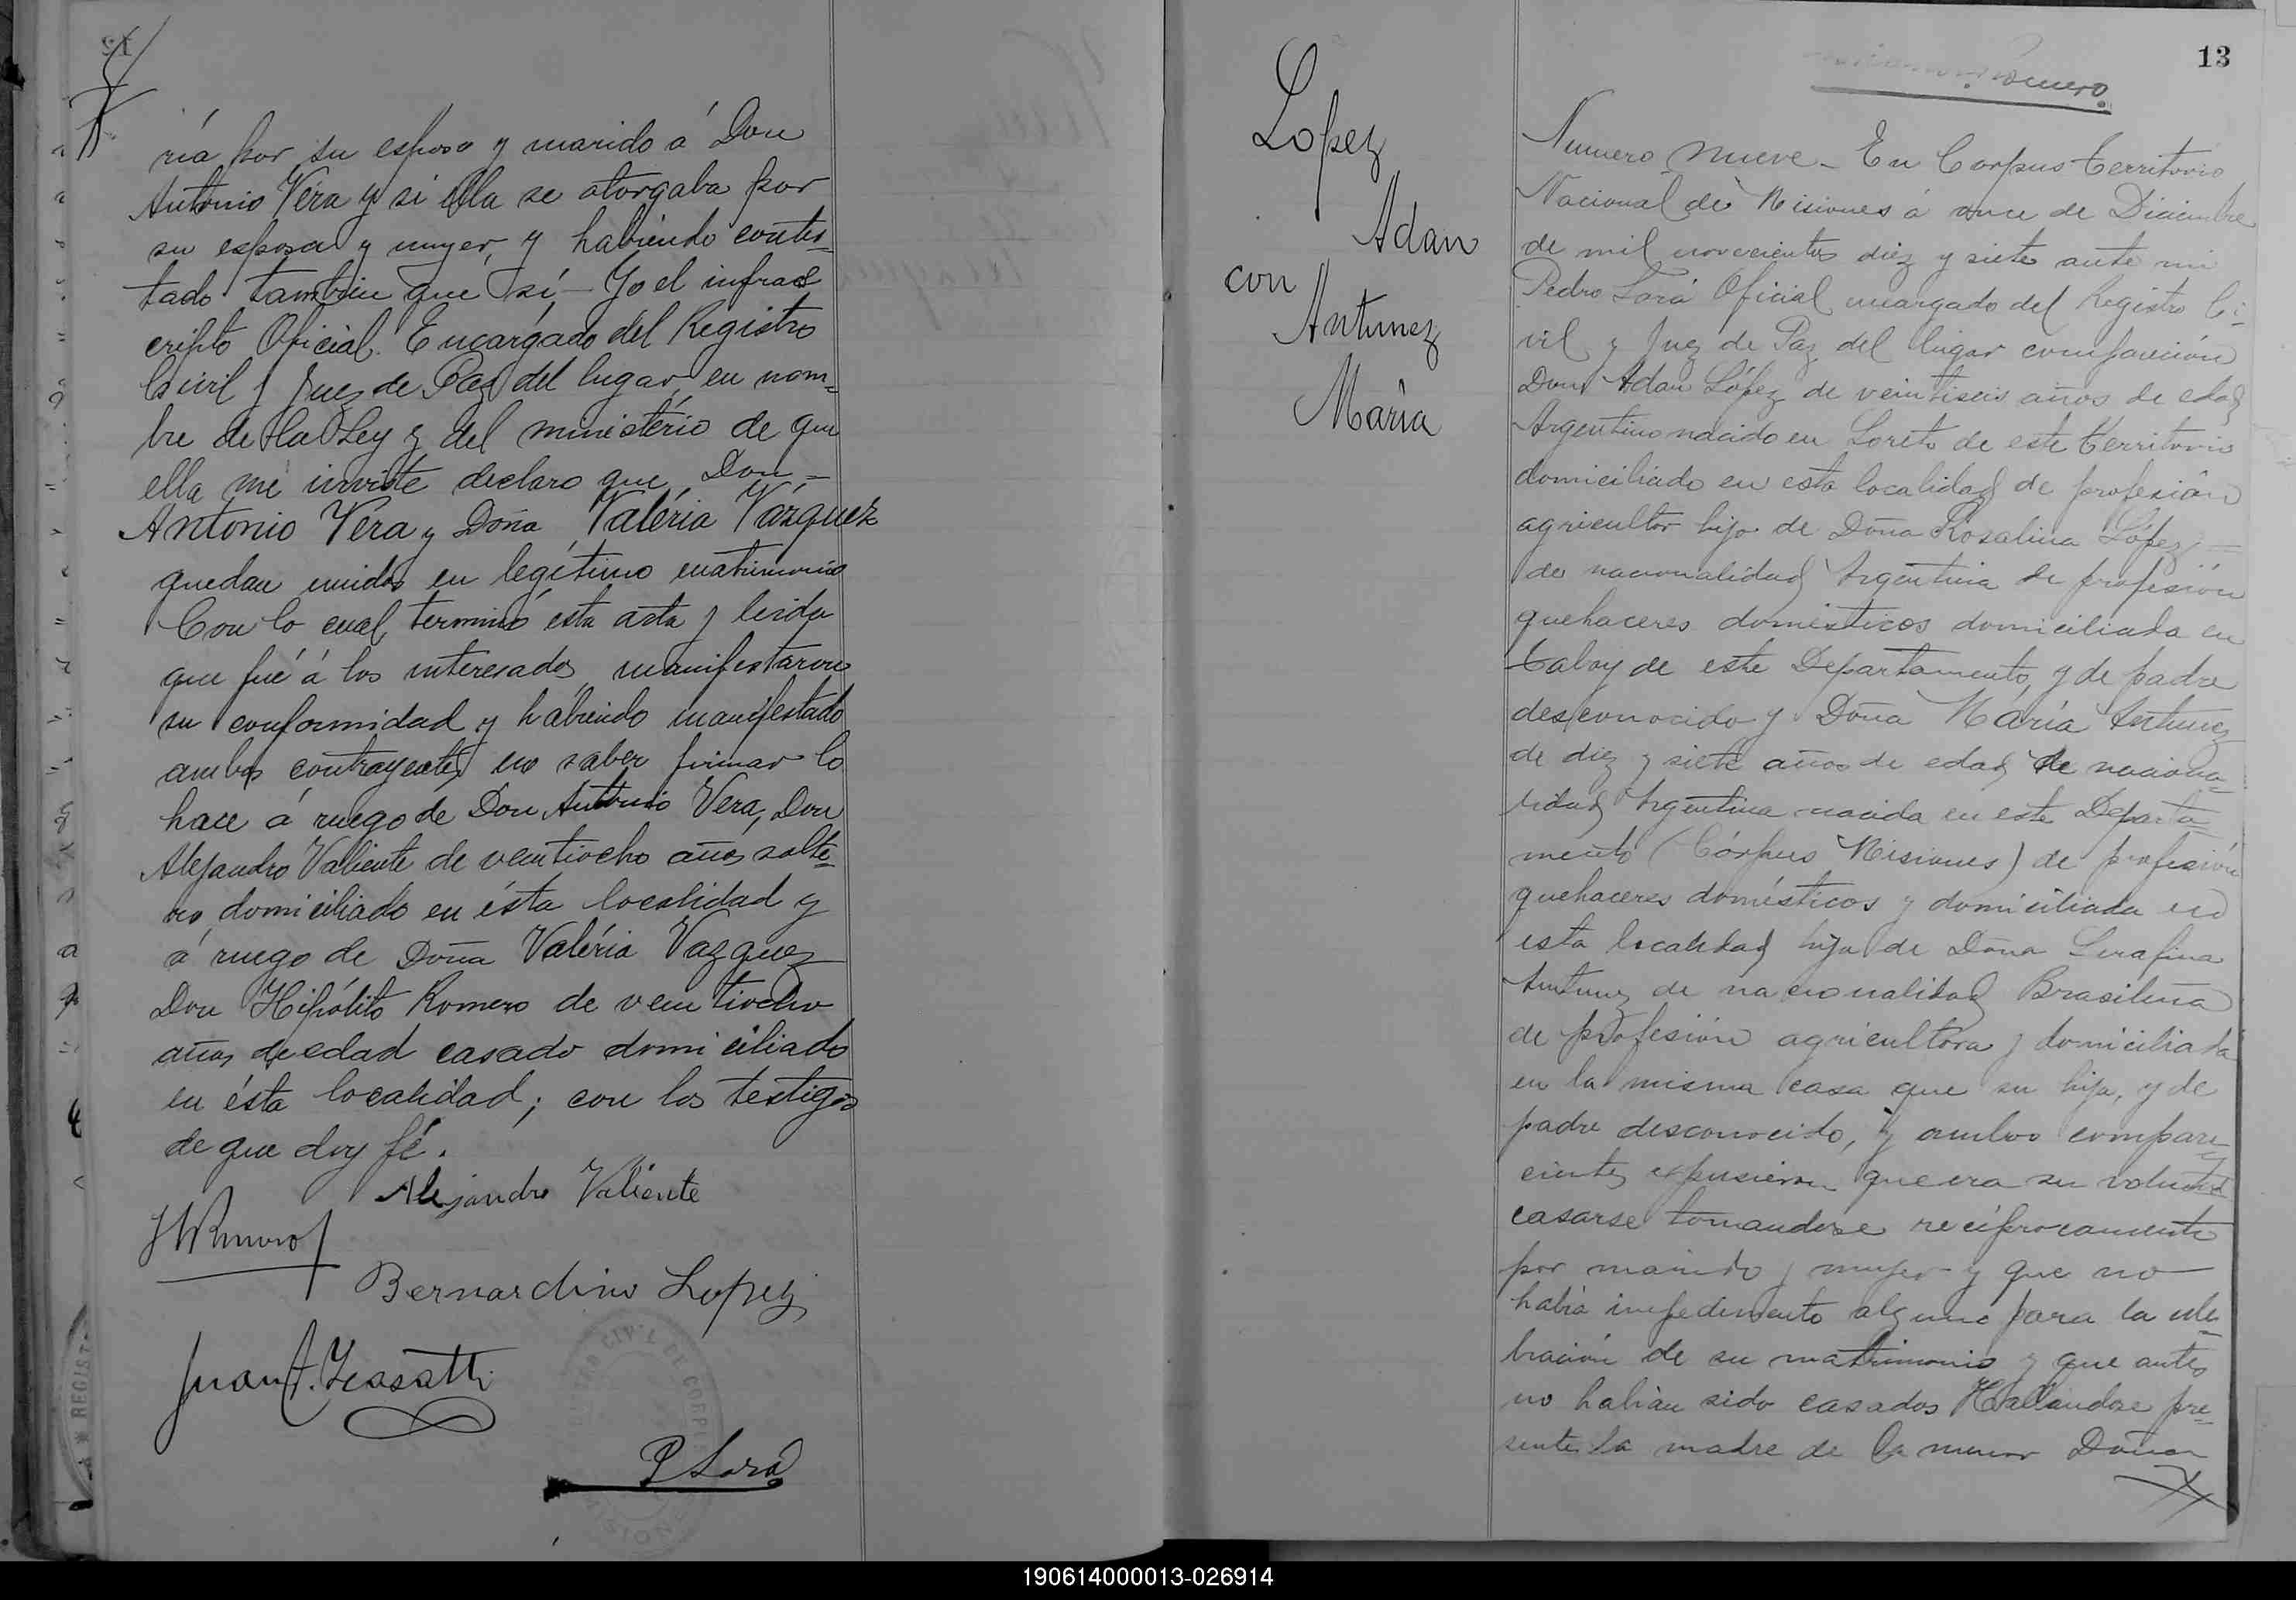 ría por su esposo y marido á Don
Antonio Vera y si ella se otorgaba por
su esposa y mujer, y habiendo contes-
tado tambien que sí — Yo el infras
cripto Oficial Encargado del Registro
Civil y Juez de Paz del lugar, en nom-
bre de la Ley y del ministério de que
ella me inviste declaro que Don -
Antonio Vera y Doña Valéria Vázquez
quedan unidos en legítimo matrimonio
Con lo cual terminó esta acta y leida
que fué á los interesados manifestaron
su conformidad y habiendo manifestado
ambos contrayentes no saber firmar lo
hace á ruego de Don Antonio Vera, Don
Alejandro Valiente de veintiocho años solte-
ro, domiciliado en ésta localidad y
á ruego de Doña Valéria Vazquez
Don Hipólito Romero de veintiocho
años de edad casado domiciliado
en ésta localidad; con los testigos
de que doy fé.
Alejandro Valiente
HRomero
Bernardino Lopez
Juan A.
P Lara
REGIST
CIVIL DE CORP
MISIONE
Lopez
Adan
con
Antunez
María
13
Romero.
Numero nueve - En Corpus Territorio
Nacional de Misiones á once de Diciembre
de mil novecientos diez y siete ante mi
Pedro Lara Oficial encargado del Registro Ci-
vil y Juez de Paz del lugar comparecieron
Don Adan López de veintiseis años de edad
Argentino nacido en Loreto de este Territorio
domiciliado en esta localidad de profesión
agricultor hijo de Doña Rosalina López —
de nacionalidad Argentina de profesión
quehaceres domésticos domiciliada en
de este Departamento, y de padre
desconocido y Doña María Antunez
de diez y siete años de edad de naciona-
lidad Argentina nacida en este Departa-
mento (Córpus Misiones) de profesión
quehaceres domésticos y domiciliada en
esta localidad hija de Doña Serafina
Antunez de nacionalidad Brasileña
de profesión agricultora y domiciliada
en la misma casa que su hija, y de
padre desconocido, y ambos compare-
cientes expusieron que era su voluntad
casarse tomandose recíprocamente
por marido y mujer y que no
había impedimento alguno para la cele-
bración de su matrimonio y que antes
no habían sido casados Hallandose pre-
sente la madre de la menor Doña
190614000013-026914